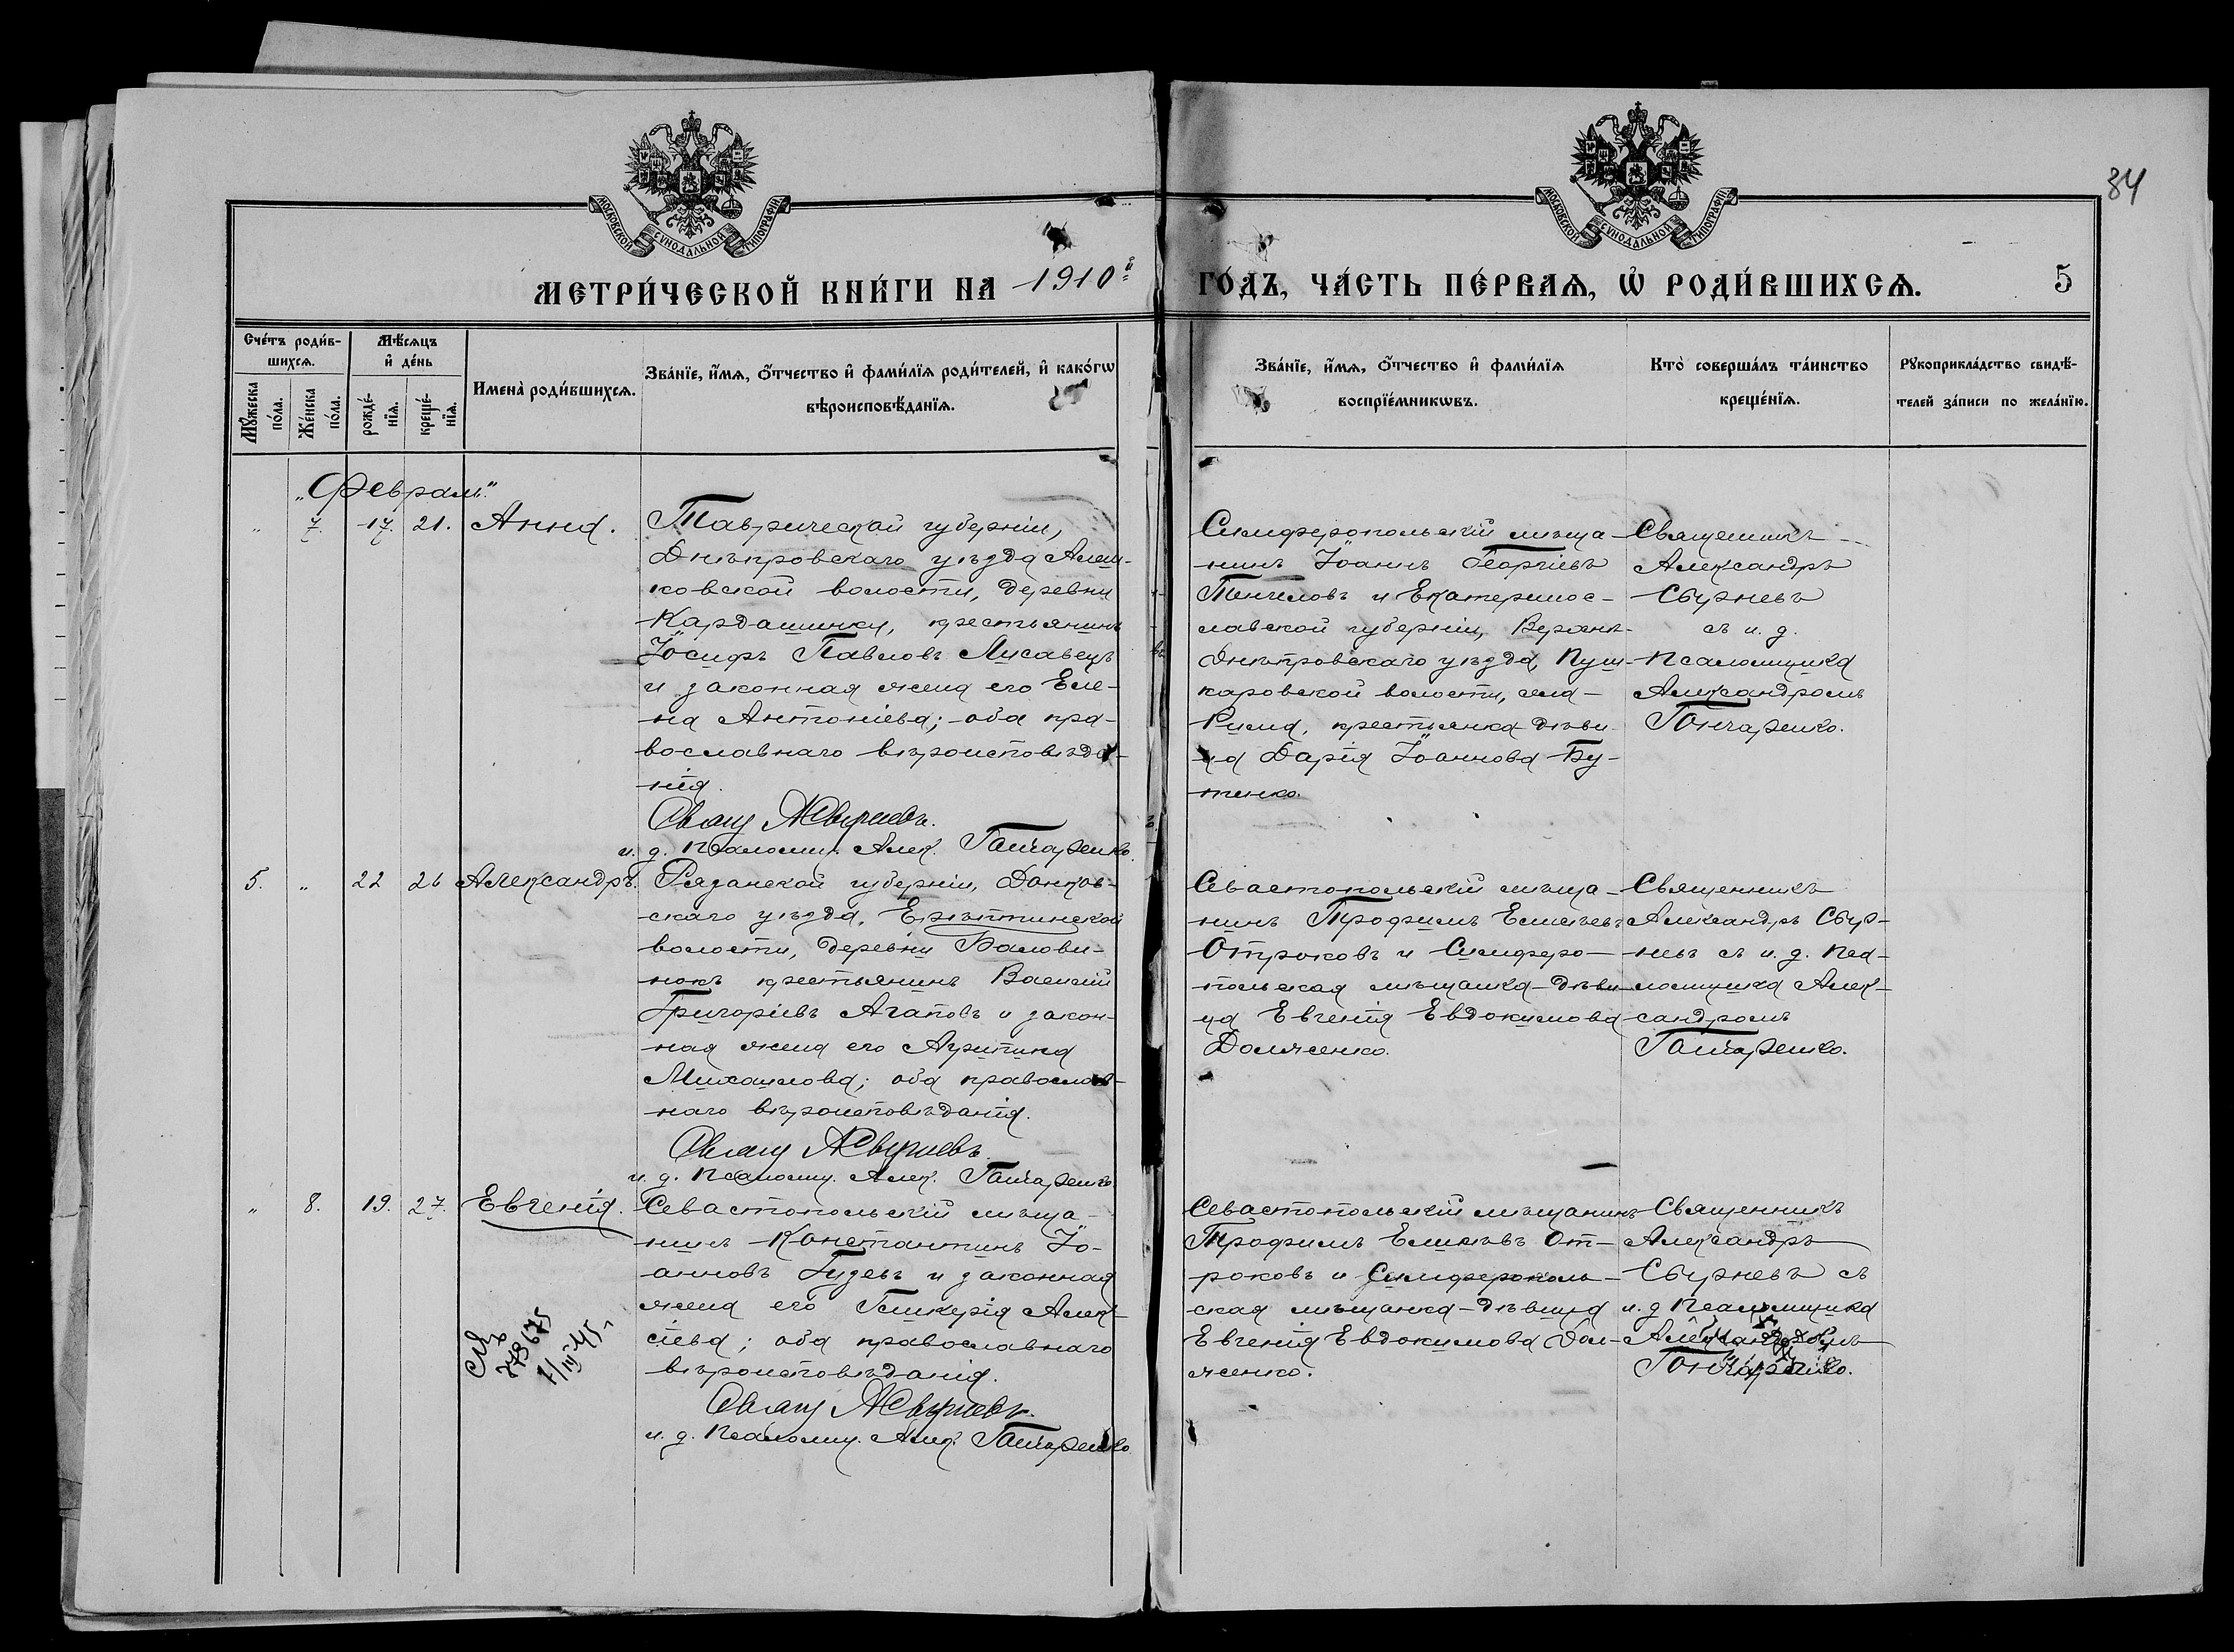 84
МОСКОВСКОЙ СѴНОДАЛЬНОЙ ТИПОГРАФІИ
МОСКОВСКОЙ СѴНОДАЛЬНОЙ ТИПОГРАФІИ
МЕТРИ́ЧЕСКОЙ КНИ́ГИ НА 1910й
ГО́ДЪ, ЧА́СТЬ ПЕ́РВАѦ, Ѡ҆ РОДИ́ВШИХСѦ. 5
Сче́тъ роди́в-
шихсѧ.
Мꙋ́жеска
по́ла.
Же́нска
по́ла.
Мѣ́сѧцъ
и҆ де́нь
рожде́-
нїѧ.
креще́-
нїѧ.
Имена̀ роди́вшихсѧ.
Зва́нїе, и҆́мѧ, ѻ҆́тчество и҆ фами́лїѧ роди́телей, и҆ како́гѡ
вѣроисповѣ́данїѧ.
Зва́нїе, и҆́мѧ, ѻ҆́тчество и҆ фами́лїѧ
воспрїе́мникѡвъ.
Кто̀ соверша́лъ та́инство
креще́нїѧ.
Рꙋкоприкла́дство свидѣ́-
телей за́писи по жела́нїю.
„Февраль“
„ 7. 17. 21. Анна.
Таврической губерніи,
Днѣпровскаго уѣзда Алеш-
ковской волости, деревни
Кардашинки, крестьянинъ
Іосифъ Павловъ Лисавецъ
и законная жена его Еле-
на Антоніева; оба пра-
вославнаго вѣроисповѣда-
нія.
Свящ АСвирневъ.
и. д. Псаломщ. Алек. Гончаренко.
Симферопольскій мѣща-
нинъ Іоаннъ Георгіевъ
Пенчиловъ и Екатеринос-
лавской губерніи, Верхне-
Днѣпровскаго уѣзда, Пуш-
каровской волости, села
крестьянка дѣви-
ца Дарія Іоаннова Бу-
тенко.
Священникъ
Александръ
Свирневъ
съ и. д.
Псаломщика
Александромъ
Гончаренко.
5. „ 22 26 Александръ.
Рязанской губерніи, Данков-
скаго уѣзда,
волости, деревни Балови-
нокъ крестьянинъ Василій
Григоріевъ Агаповъ и закон-
ная жена его Агрипина
Михаилова; оба православ-
наго вѣроисповѣданія.
Свящ АСвирневъ.
и. д. Псаломщ. Алек. Гончаренко.
Севастопольскій мѣща-
нинъ Трофимъ Емельевъ
Отроковъ и Симферо-
польская мѣщанка-дѣви-
ца Евгенія Евдокимова
Долженко.
Священникъ
Александръ Свир-
невъ съ и. д. Пса-
ломщика Алек-
сандромъ
Гончаренко.
„ 8. 19. 27. Евгенія.
Севастопольскій мѣща-
нинъ Константинъ Іо-
анновъ Гудевъ и законная
жена его Гликерія Алек-
сіева; оба православнаго
вѣроисповѣданія.
Свящ АСвирневъ.
и. д. Псаломщ. Алек. Гончаренко
779675
1/III-45 г
Севастопольскій мѣщанинъ
Трофимъ От-
роковъ и Симферополь-
ская мѣщанка-дѣвица
Евгенія Евдокимова Дол-
женко.
Священникъ
Александръ
Свирневъ съ
и. д Псаломщика
Александромъ
Гончаренко.